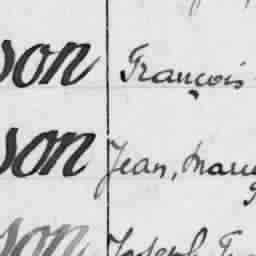 son François
son Jean, Marie
son Joseph, Fr